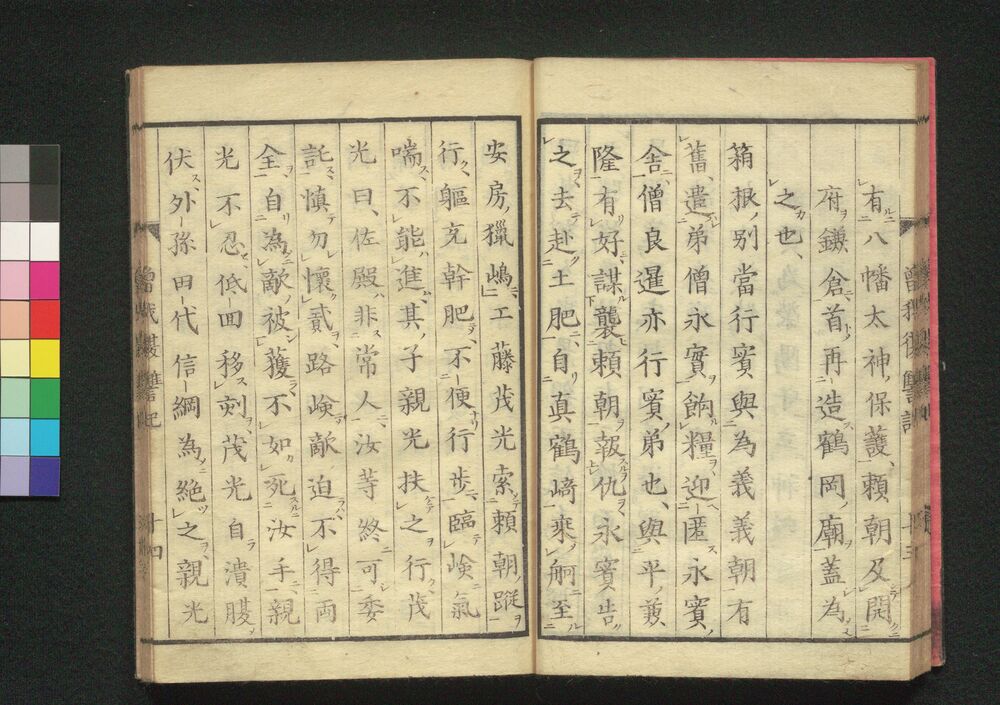 有八幡太神保護、頼朝及開
府鎌倉、首再造鶴岡廟、蓋為
之也、
箱根別當行實與為義義朝有
舊、遣弟僧永實、餉糧迎匿永實
舎、僧良暹亦行實弟也、與平兼
隆有好、謀襲頼朝報仇、永實告
之、去赴土肥、自真鶴﨑乗舸至
安房獵嶋、工藤茂光索頼朝蹤
行、軀充幹肥、不便行歩、臨嶮氣
喘、不能進、其子親光扶之行、茂
光曰、佐殿非常人、汝等終可委
託、慎勿懷貳、路嶮敵迫、不得両
全、自為敵被獲、不如死汝手、親
光不忍、低回移刻、茂光自潰膓
伏、外孫田代信綱為絶之、親光
曾我復讐記
十四